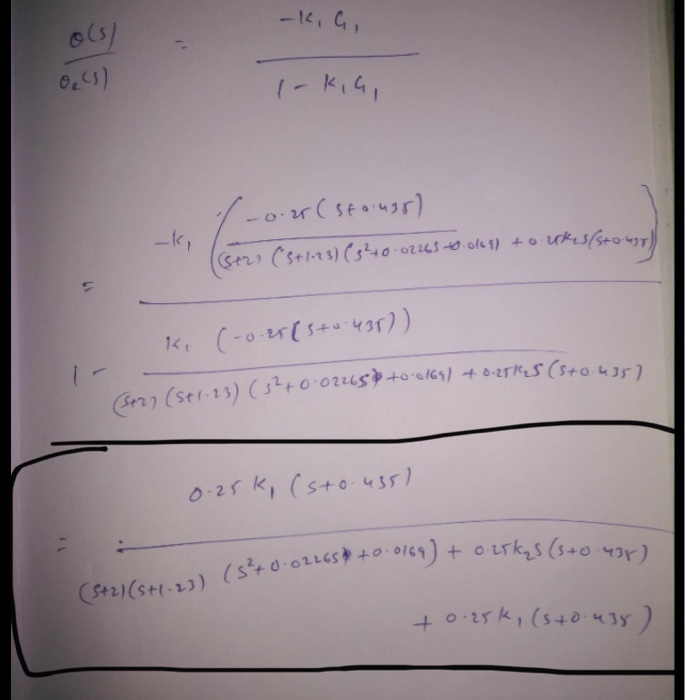 θ(s) / θe(s) = -K1 G1 / 1 - K1 G1
= -K1 ( -0.25(s+0.435) / (s+2) (s+1.23) (s²+0.0226s+0.0169) + 0.25K2s(s+0.435) )
1 - K1 (-0.25(s+0.435)) / (s+2) (s+1.23) (s²+0.0226s+0.0169) + 0.25K2s (s+0.435)
= 0.25 K1 (s+0.435)
(s+2)(s+1.23) (s²+0.0226s+0.0169) + 0.25K2s(s+0.435)
+ 0.25K1(s+0.435)